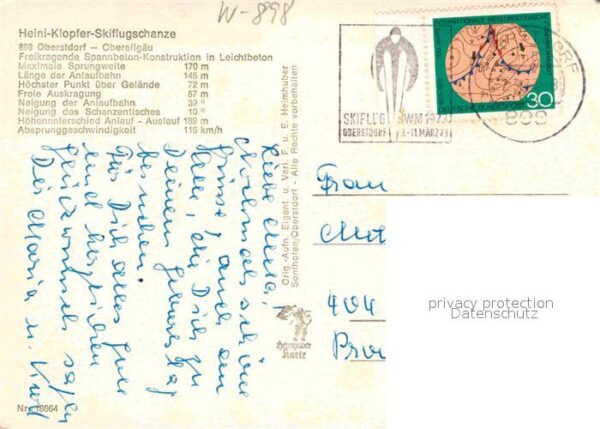 W-898
Heini-Klopfer-Skiflugschanze
898 Oberstdorf — Oberallgäu
Freikragende Spannbeton-Konstruktion in Leichtbeton
Maximale Sprungweite 170 m
Länge der Anlaufbahn 145 m
Höchster Punkt über Gelände 72 m
Freie Auskragung 57 m
Neigung der Anlaufbahn 39 °
Neigung des Schanzentisches 10 °
Höhenunterschied Anlauf - Auslauf 189 m
Absprunggeschwindigkeit 115 km/h
Orig.-Aufn. Eigent. u. Verl. F. u. E. Heimhuber
Sonthofen/Oberstdorf - Alle Rechte vorbehalten
Liebe
Nochmals schöne
Grüsse, auch an
die Dich zu
Deinem Geburtstag
besuchen.
Für Dich alles Gute
und herzlichen
Glückwunsch
Die Maria u.
Heimhuber
Karte
Nr. 18664
SKIFLUG WM 1973
OBERSTDORF 8.-11. MÄRZ 73
INTERNATIONALE METEOROLOGISCHE
DEUTSCHE BUNDESPOST
30
898
Frau
404
privacy protection
Datenschutz